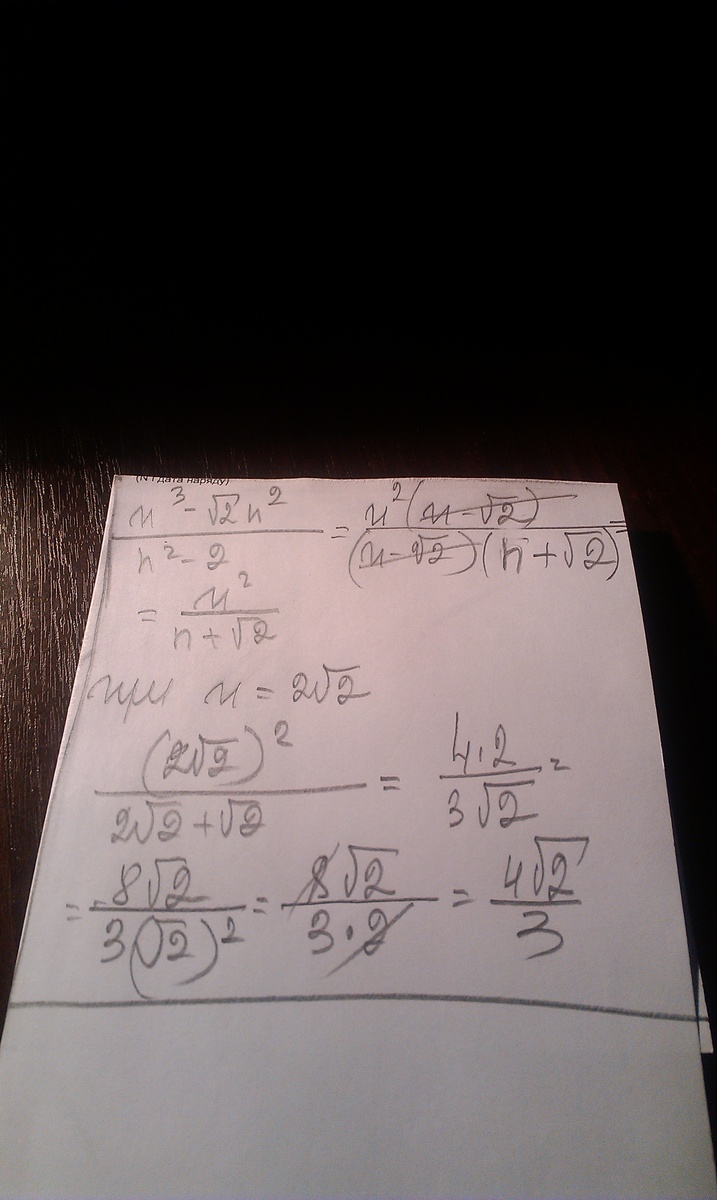 (N і дата наряду)
(n³ - √2 n²)/(n² - 2) = (n²(n - √2))/((n - √2)(n + √2)) =
= n²/(n + √2)
при n = 2√2
(2√2)²/(2√2 + √2) = (4·2)/(3√2) =
= 8√2/(3(√2)²) = 8√2/(3·2) = 4√2/3